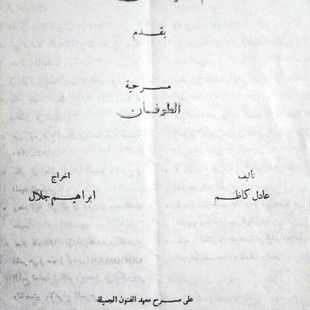 يقدم
مسرحية
الطوفان
تأليف
عادل كاظم
اخراج
ابراهيم جلال
على مسرح معهد الفنون الجميلة